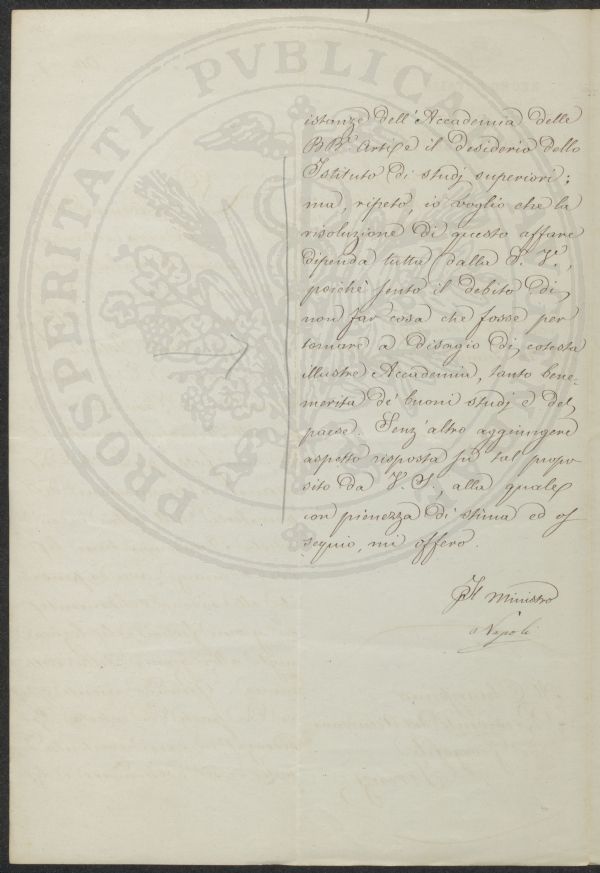 PROSPERITATI PVBLICAE
istanze dell'Accademia delle
BB. Arti, e il desiderio dello
Istituto di studj superiori;
ma, ripeto, io voglio che la
risoluzione di questo affare
dipenda tutta dalla S. V.,
poichè sento il debito di
non far cosa che fosse per
tornare a disagio di cotesta
illustre Accademia, tanto bene-
merita de' buoni studj e del
paese. Senz'altro aggiungere
aspetto risposta su tal propo-
sito da V. S., alla quale
con pienezza di stima ed os
sequio, mi offero.
Il Ministro
Napoli